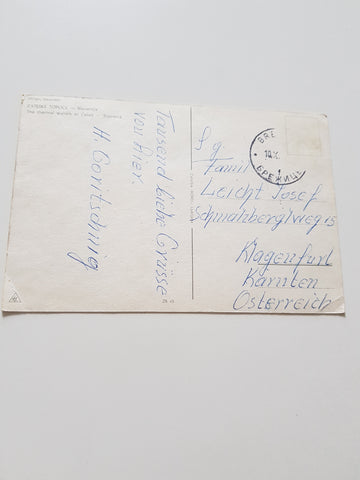 ČATEŠKE TOPLICE — Slovenija
The thermal waters at Čatež — Slovenia
Tausend liebe Grüsse
von hier.
H. Goritschnig
S. g.
Famil
Leicht Josef
Schmalzberglweg 15
Klagenfurt
Kärnten
Österreich
BRE
БРЕЖИЦЕ